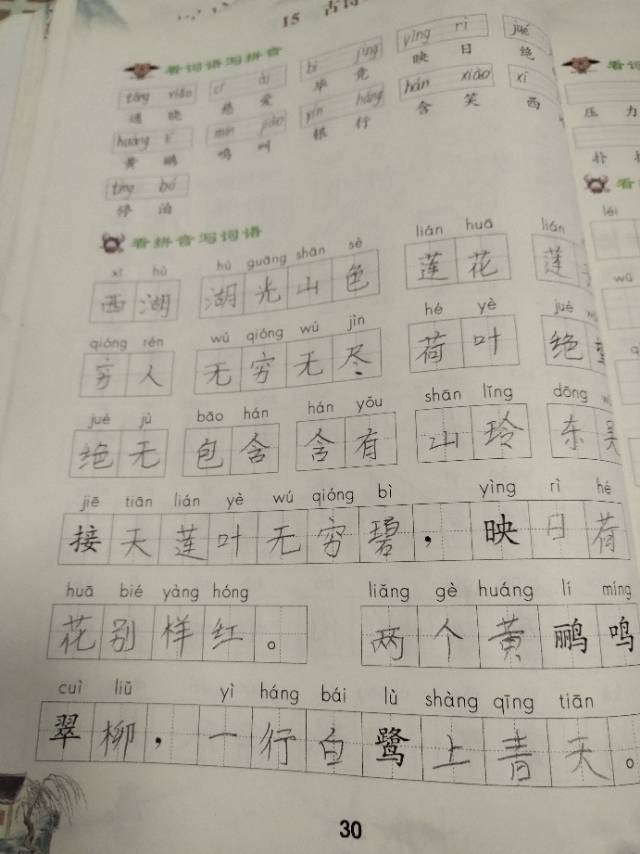 15 古诗
看词语写拼音
tōng xiǎo cí ài bì jìng yìng rì jué
通晓 慈爱 毕竟 映日 绝
huáng lí míng jiào yín háng hán xiào xī
黄鹂 鸣叫 银行 含笑 西
tíng bó
停泊
压力
看拼音写词语
xī hú hú guāng shān sè lián huā lián
西湖 湖光山色 莲花 莲
léi
wū
qióng rén wú qióng wú jìn hé yè jué
穷人 无穷无尽 荷叶 绝
jué jù bāo hán hán yǒu shān lǐng dōng
绝无 包含 含有 山玲 东吴
jiē tiān lián yè wú qióng bì yìng rì hé
接天莲叶无穷碧，映日荷
huā bié yàng hóng liǎng gè huáng lí míng
花别样红。 两个黄鹂鸣
cuì liǔ yì háng bái lù shàng qīng tiān
翠柳，一行白鹭上青天。
30